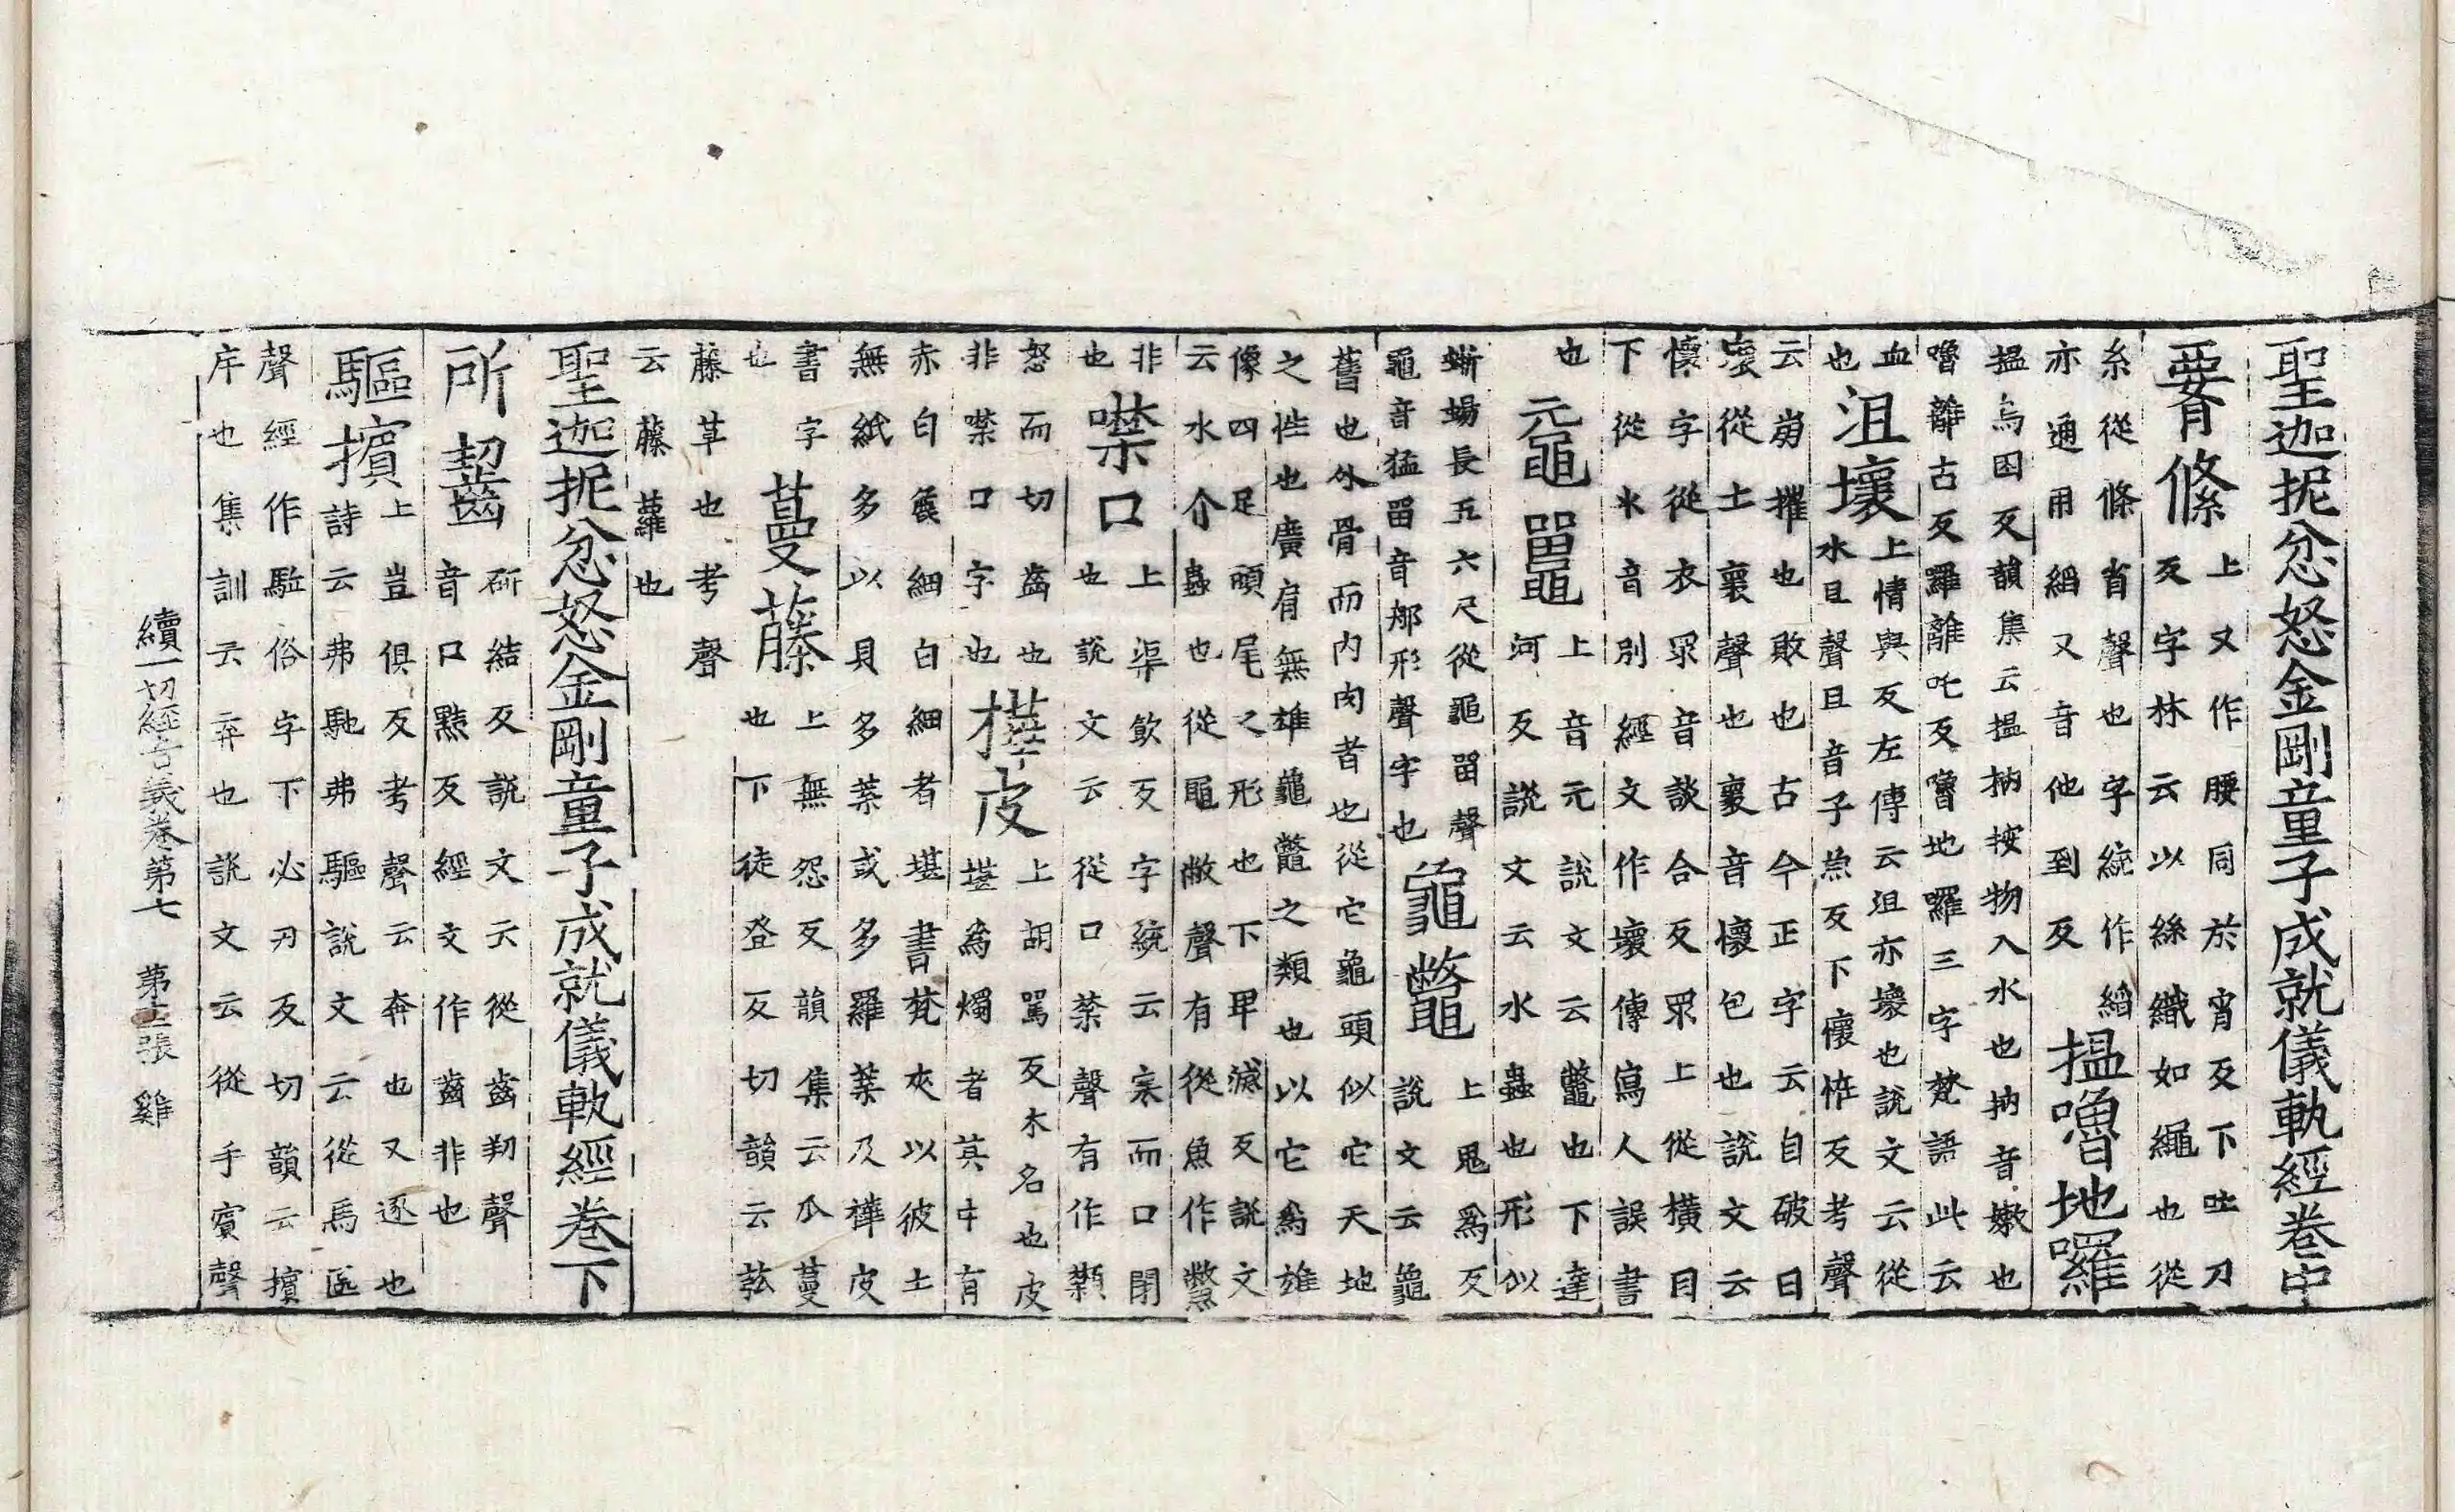 聖迦抳忿怒金剛童子成就儀軌經卷中
䙅絛
上又作腰同於宵反下吐刀
反字林云以絲織如繩也從
糸從條省聲也字統作縚
亦通用縚又音他到反
搵嚕地囉
搵烏困反韻集云搵抐按物入水也抐音嫩也
嚕離古反羅離吒反嚕地囉三字梵語此云
血
也
沮壞
上情與反左傳云沮亦壞也說文云從
水且聲且音子魚反下懷恠反考聲
云崩摧也敗也古今正字云自破曰
壞從土褱聲也褱音懷包也說文云
懷字從衣眔音談合反眔上從橫目
下從氺音別經文作壞傳寫人誤書
也
黿鼉
上音元說文云鼈也下達
河反說文云水蟲也形似
蜥蜴長五六尺從黽𠱠聲
黽音猛𠱠音那形聲字也
龜鼈
上鬼爲反
說文云龜
舊也外骨而内肉者也從它龜頭似它天地
之性也廣肩無雄龜鼈之類也以它爲雄
像四足頭尾之形也下早滅反說文
云水介蟲也從黽敝聲有從魚作鱉
非
也
噤口
上渠飲反字統云寒而口閉
也說文云從口禁聲有作䫴
怒而切齒也
非噤口字也
樺皮
上胡罵反木名也皮
堪爲燭者其中有
赤白㒵細白細者堪書梵夾以彼土
無紙多以貝多葉或多羅葉及樺皮
書字
也
蔓藤
上無怨反韻集云瓜蔓
也下徒登反切韻云苰
藤草也考聲
云藤蘿也
聖迦抳忿怒金剛童子成就儀軌經卷下
所齧
研結反說文云從齒㓞聲
音口黠反經文作齒非也
驅擯
上豈俱反考聲云奔也又逐也
詩云弗馳弗驅說文云從馬區
聲經作駈俗字下必刃反切韻云擯
斥也集訓云弃也說文云從手賓聲
續一切經音義卷第七 第十二張 雞